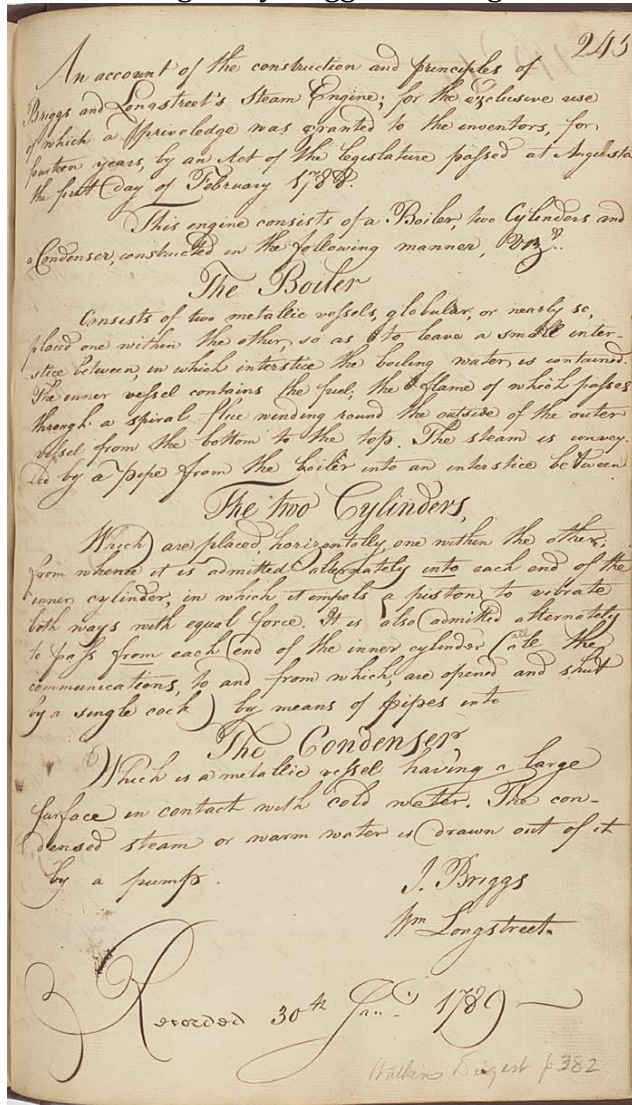 245
An account of the construction and principles of
Briggs and Longstreet's Steam Engine; for the exclusive use
of which a Priveledge was granted to the inventors, for
fourteen years, by an Act of the legislature passed at Augusta
the first day of February 1788.
This engine consists of a Boiler, two Cylinders and
a Condenser, constructed in the following manner, Viz.
The Boiler
Consists of two metallic vessels, globular, or nearly so,
placed one within the other, so as to leave a small inter-
stice between, in which interstice the boiling water is contained.
The inner vessel contains the fuel; the flame of which passes
through a spiral flue winding round the outside of the outer
vessel from the bottom to the top. The steam is convey-
ed by a pipe from the boiler into an interstice between
The two Cylinders,
Which are placed, horizontally, one within the other;
from whence it is admitted alternately into each end of the
inner cylinder, in which it impels a piston, to vibrate
both ways with equal force. It is also admitted alternately
to pass from each end of the inner cylinder (all the
communications, to and from which, are opened and shut
by a single cock) by means of pipes into
The Condenser,
Which is a metallic vessel having a large
surface in contact with cold water. The con-
densed steam or warm water is drawn out of it
by a pump.
J. Briggs
Wm Longstreet.
Recorded 30th Jany. 1789
Watkins Digest p 382